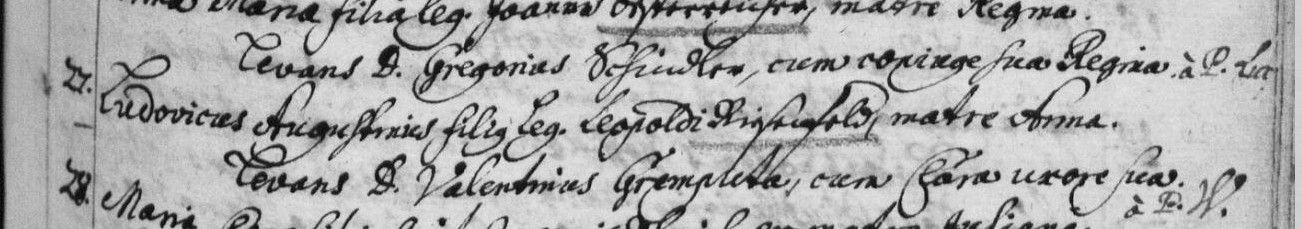 Maria filia leg. Joannis Osterreicher, matre Regina.
Levans D. Gregorius Schindler, cum conjuge sua Regina. à P. Luc
27. Ludovicus Augustinus filiq leg. Leopoldi Riesenfeld, matre Anna.
Levans D. Valentinus Grempleta, cum Clara uxore sua.
à P. W.
28. Maria matre Juliana